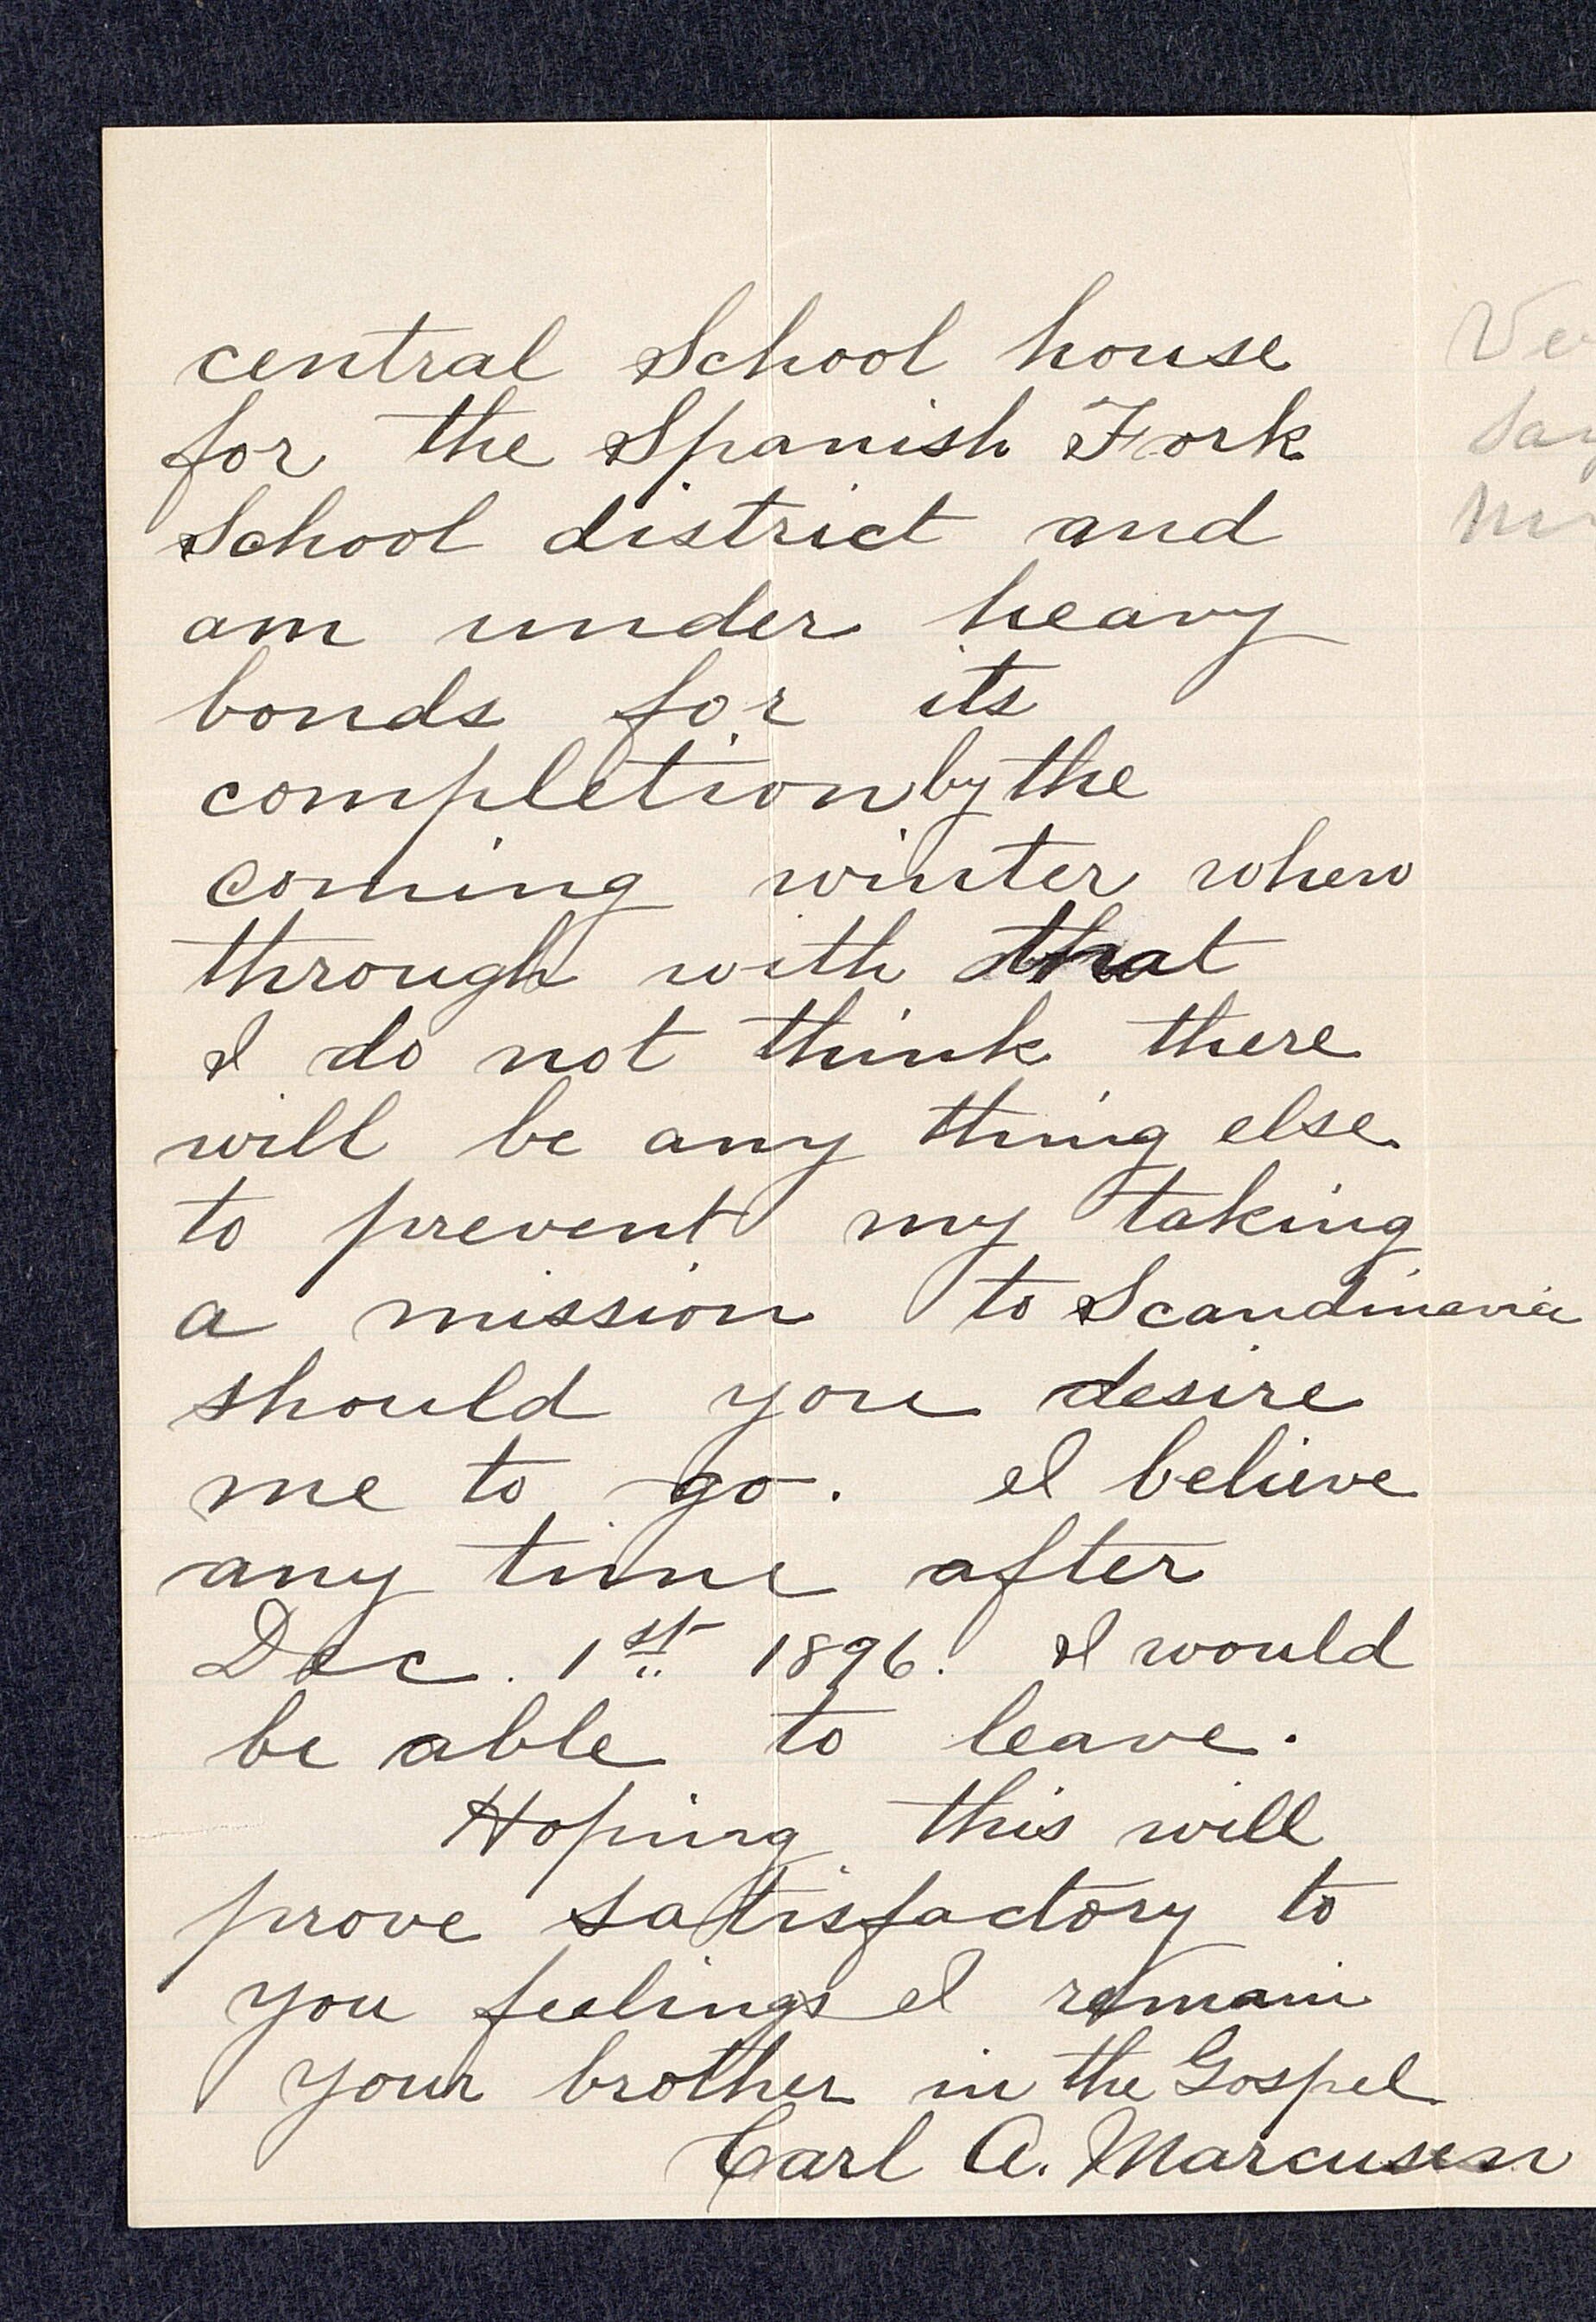 central School house
for the Spanish Fork
School district and
am under heavy
bonds for its
completion by the
coming winter when
through with that
I do not think there
will be any thing else
to prevent my taking
a mission to Scandinavia
should you desire
me to go. I believe
any time after
Dec. 1st 1896. I would
be able to leave.
Hoping this will
prove satisfactory to
you feelings I remain
your brother in the Gospel
Carl A. Marcusen